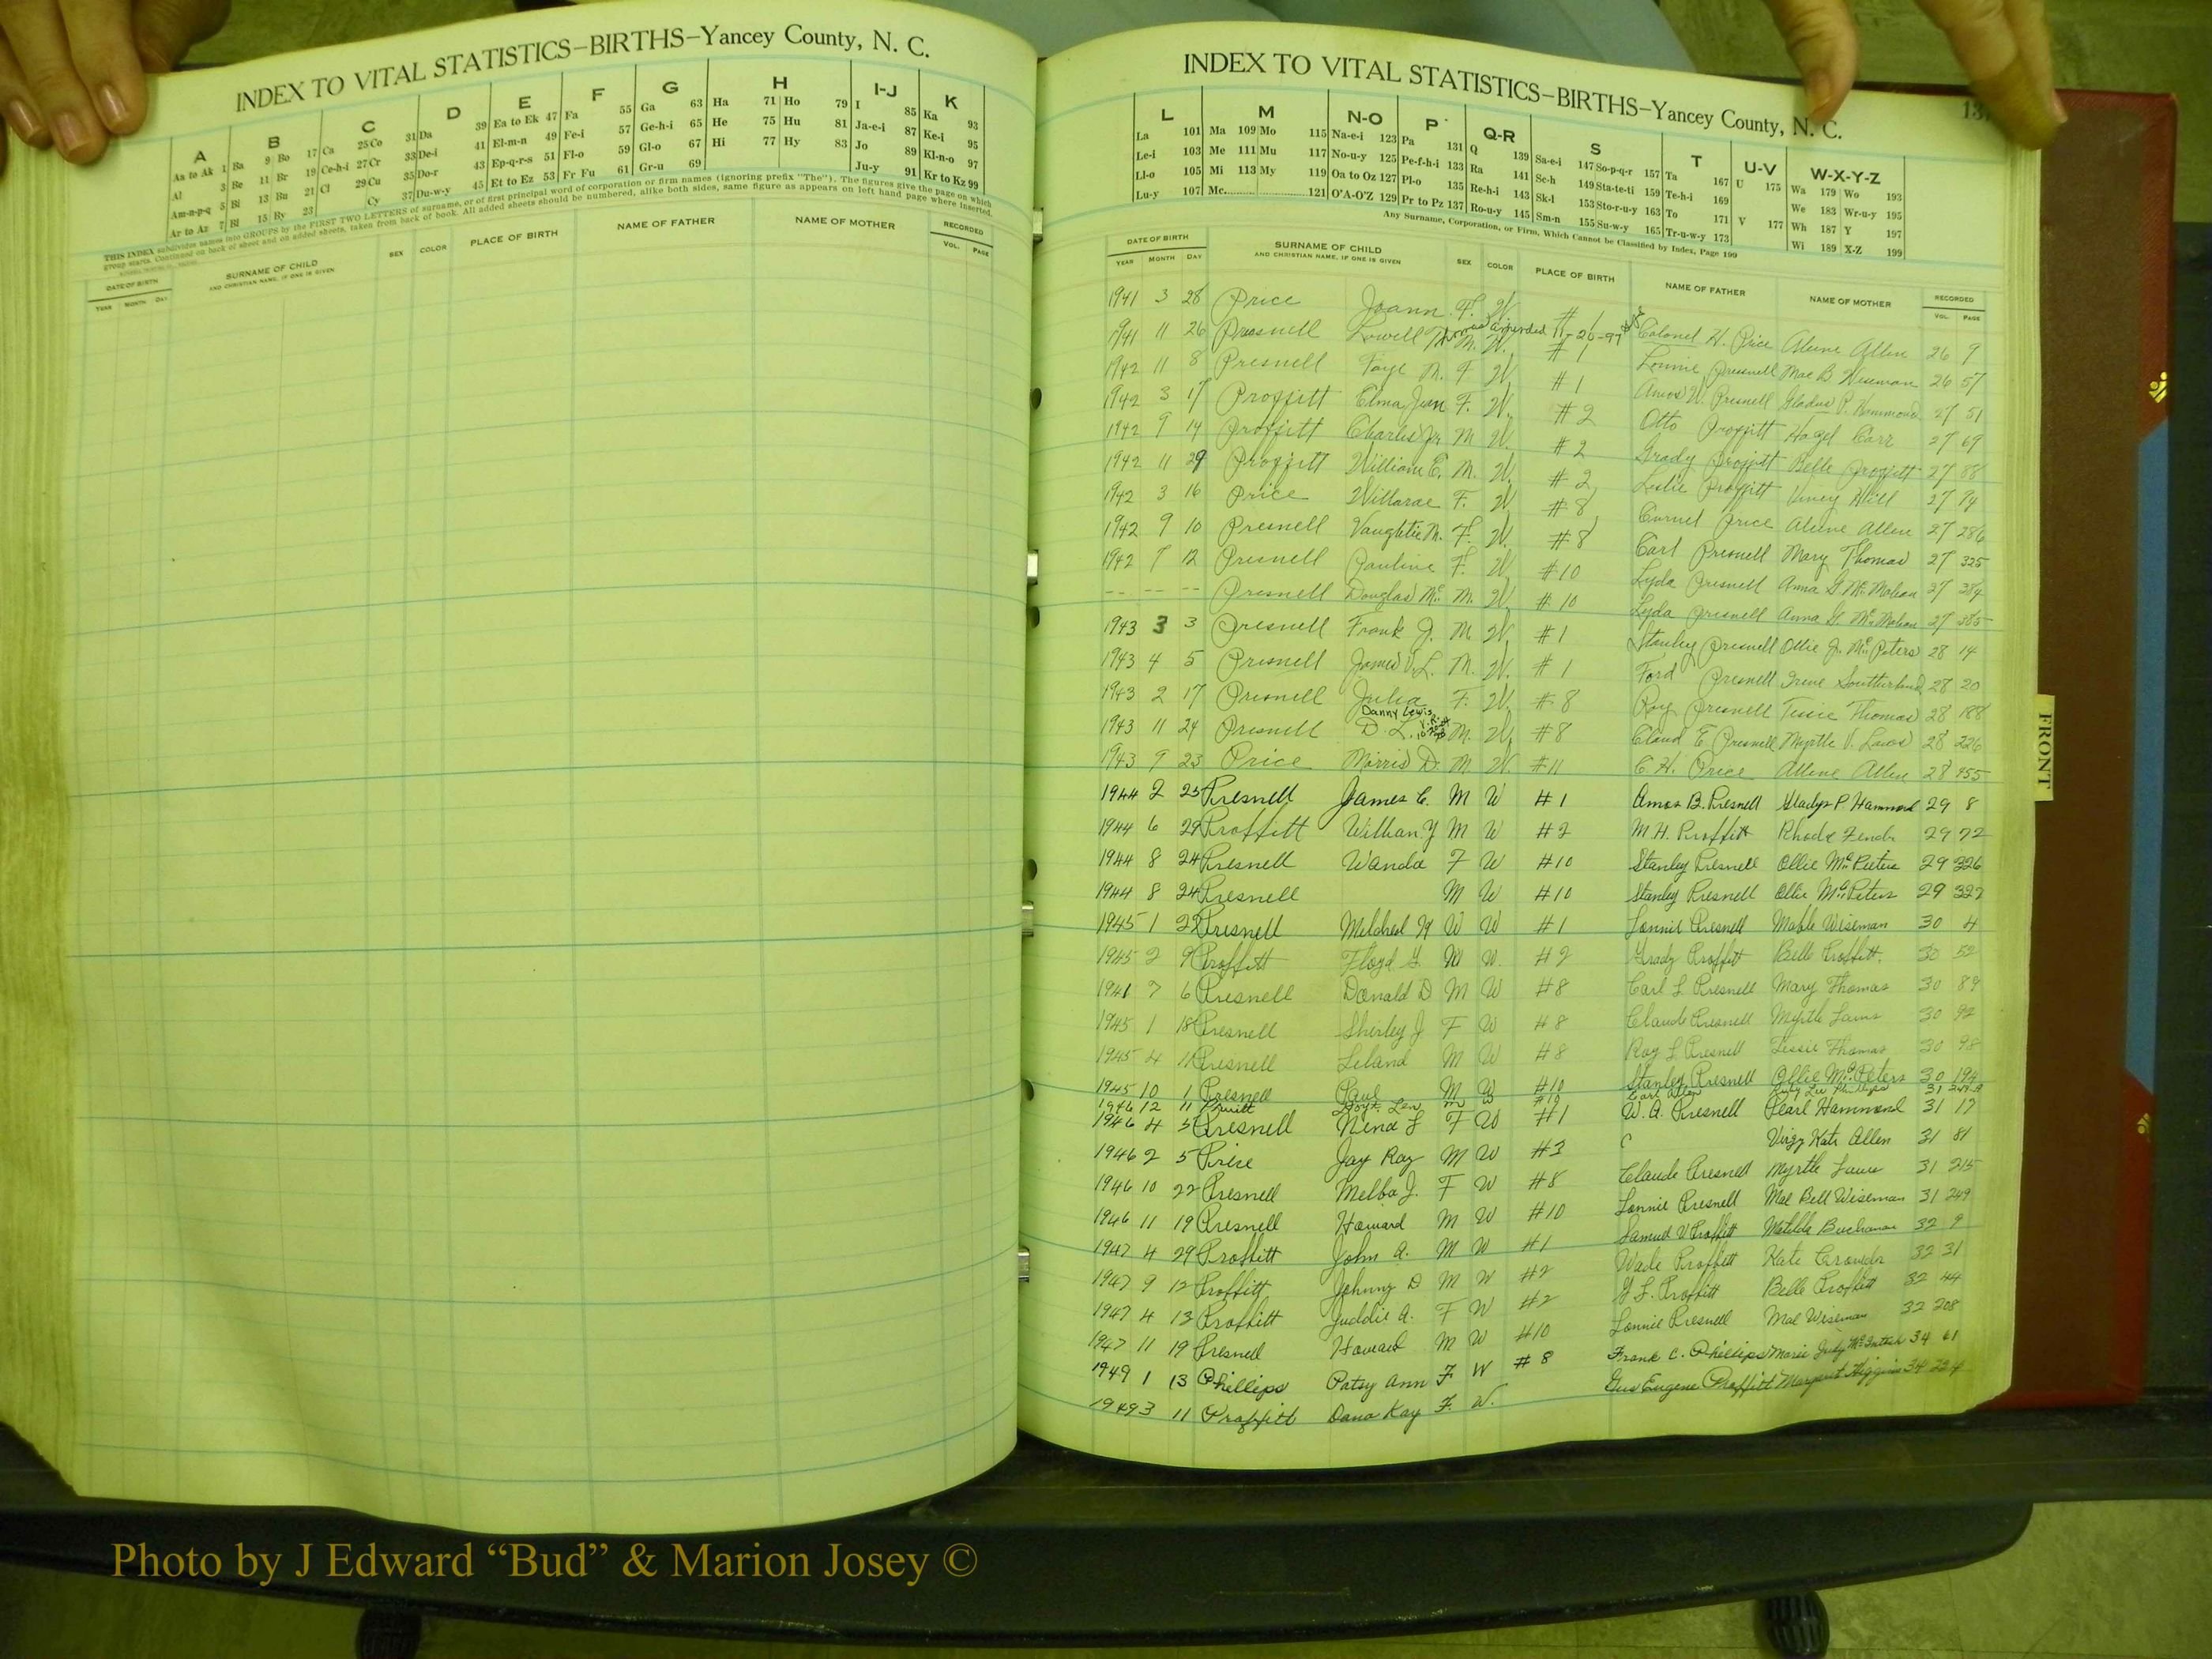 INDEX TO VITAL STATISTICS–BIRTHS–Yancey County, N. C.
A B C D E F G H I-J K
Aa to Ak 1 Ba 9 Bo 17 Ca 25 Co 31 Da 39 Ea to Ek 47 Fa 55 Ga 63 Ha 71 Ho 79 I 85 Ka 93
Al 3 Be 11 Br 19 Ce-h-i 27 Cr 33 De-i 41 El-m-n 49 Fe-i 57 Ge-h-i 65 He 75 Hu 81 Ja-e-i 87 Ke-i 95
Am-n-p-q 5 Bi 13 Bu 21 Cl 29 Cu 35 Do-r 43 Ep-q-r-s 51 Fl-o 59 Gl-o 67 Hi 77 Hy 83 Jo 89 Kl-n-o 97
Ar to Az 7 Bl 15 By 23 Cy 37 Du-w-y 45 Et to Ez 53 Fr Fu 61 Gr-u 69 Ju-y 91 Kr to Kz 99
THIS INDEX subdivides names into GROUPS by the FIRST TWO LETTERS of surname, or of first principal word of corporation or firm names (ignoring prefix "The"). The figures give the page on which
group starts. Continued on back of sheet and on added sheets, taken from back of book. All added sheets should be numbered, alike both sides, same figure as appears on left hand page where inserted.
DATE OF BIRTH SURNAME OF CHILD SEX COLOR PLACE OF BIRTH NAME OF FATHER NAME OF MOTHER RECORDED
YEAR MONTH DAY AND CHRISTIAN NAME, IF ONE IS GIVEN VOL. PAGE
INDEX TO VITAL STATISTICS–BIRTHS–Yancey County, N. C.
L M N-O P Q-R S T U-V W-X-Y-Z
La 101 Ma 109 Mo 115 Na-e-i 123 Pa 131 Q 139 Sa-e-i 147 So-p-q-r 157 Ta 167 U 175 Wa 179 Wo 193
Le-i 103 Me 111 Mu 117 No-u-y 125 Pe-f-h-i 133 Ra 141 Sc-h 149 Sta-te-ti 159 Te-h-i 169 We 183 Wr-u-y 195
Ll-o 105 Mi 113 My 119 Oa to Oz 127 Pl-o 135 Re-h-i 143 Sk-l 153 Sto-r-u-y 163 To 171 V 177 Wh 187 Y 197
Lu-y 107 Mc 121 O'A-O'Z 129 Pr to Pz 137 Ro-u-y 145 Sm-n 155 Su-w-y 165 Tr-u-w-y 173 Wi 189 X-Z 199
Any Surname, Corporation, or Firm, Which Cannot be Classified by Index, Page 199
DATE OF BIRTH SURNAME OF CHILD SEX COLOR PLACE OF BIRTH NAME OF FATHER NAME OF MOTHER RECORDED
YEAR MONTH DAY AND CHRISTIAN NAME, IF ONE IS GIVEN VOL. PAGE
1941 3 28 Price Joann F. W. # 1 Colonel H. Price Aleene Allen 26 9
1941 11 26 Presnell Lowell Thomas amended 11-26-97 M. W. # 1 Lonnie Presnell Mae B Wiseman 26 57
1942 11 8 Presnell Faye M. F W # 1 Amos W. Presnell Gladys P. Hammond 27 51
1942 3 17 Proffitt Elma Jean F. W. # 2 Otto Proffitt Hazel Carr 27 69
1942 9 14 Proffitt Charles Jr. M W. # 2 Grady Proffitt Belle Proffitt 27 88
1942 11 29 Proffitt William E. M. W. # 2 Leslie Proffitt Viney Hill 27 94
1942 3 16 Price Willarae F. W # 8 Curnel Price Aleene Allen 27 286
1942 9 10 Presnell M. F. W. # 8 Carl Presnell Mary Thomas 27 325
1942 9 12 Presnell Pauline F. W. # 10 Lyda Presnell Anna G. McMahan 27 384
-- -- -- Presnell Douglas Mc. M. W. # 10 Lyda Presnell Anna G. McMahan 27 385
1943 3 3 Presnell Frank J. M. W # 1 Stanley Presnell Ollie J. McPeters 28 14
1943 4 5 Presnell James V. L. M. W. # 1 Ford Presnell Irene Southerland 28 20
1943 2 17 Presnell Julia F. W. # 8 Roy Presnell Tessie Thomas 28 188
Danny Lewis
1943 11 24 Presnell D. L. M. W. # 8 Claud E Presnell Myrtle V. Laws 28 226
1943 9 23 Price Morris D. M W. # 11 C. H. Price Allene Allen 28 455
1944 2 25 Presnell James C. M W # 1 Amos B. Presnell Gladys P Hammond 29 8
1944 6 29 Proffitt William Y M W # 2 M. H. Proffitt Rhoda 29 72
1944 8 24 Presnell Wanda F W # 10 Stanley Presnell Ollie McPeters 29 326
1944 8 24 Presnell M W # 10 Stanley Presnell Ollie McPeters 29 327
1945 1 Presnell Mildred W W # 1 Lonnie Presnell Mable Wiseman 30 4
1945 2 9 Proffitt Floyd G M W. # 2 Grady Proffitt Belle Proffitt. 30 52
1941 7 6 Presnell Donald D M W # 8 Carl L Presnell Mary Thomas 30 89
1945 1 18 Presnell Shirley J F W # 8 Claude Presnell Myrtle Laws 30 92
1945 4 11 Presnell Leland M W # 8 Roy L Presnell Tessie Thomas 30 98
1945 10 1 Presnell Paul M W # 10 Stanley Presnell Ollie McPeters 30 194
1946 12 11 Pruitt M W # 10 Carl Allen 31
1946 4 5 Presnell Nena F F W # 1 W. A. Presnell Pearl Hammond 31 17
1946 2 5 Price Jay Ray M W # 3 Kate Allen 31 81
1946 10 22 Presnell Melba J. F W # 8 Claude Presnell Myrtle Laws 31 215
1946 11 19 Presnell Howard M W # 10 Lonnie Presnell Mae Bell Wiseman 31 249
1947 4 29 Proffitt John A. M W # 1 Samuel V Proffitt Matilda Buchanan 32 9
1947 9 12 Proffitt Johnny D M W # 2 Wade Proffitt Kate Crowder 32 31
1947 4 13 Proffitt Juddie A. F W # 2 G L. Proffitt Belle Proffitt 32 44
1947 11 19 Presnell Howard M W # 10 Lonnie Presnell Mae Wiseman 32 208
1949 1 13 Phillips Patsy Ann F W # 8 Frank C. Phillips Marie Judy 34 61
1949 3 11 Proffitt Dana Kay F. W. Gus Eugene Proffitt Margaret Higgins 34
FRONT
Photo by J Edward “Bud” & Marion Josey ©